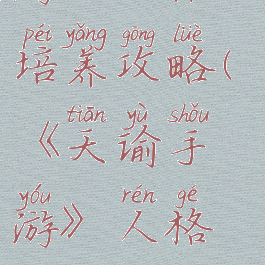 péi yǎng gōng lüè
培养攻略(
tiān yù shǒu
《天谕手
yóu rén gé
游》 人格